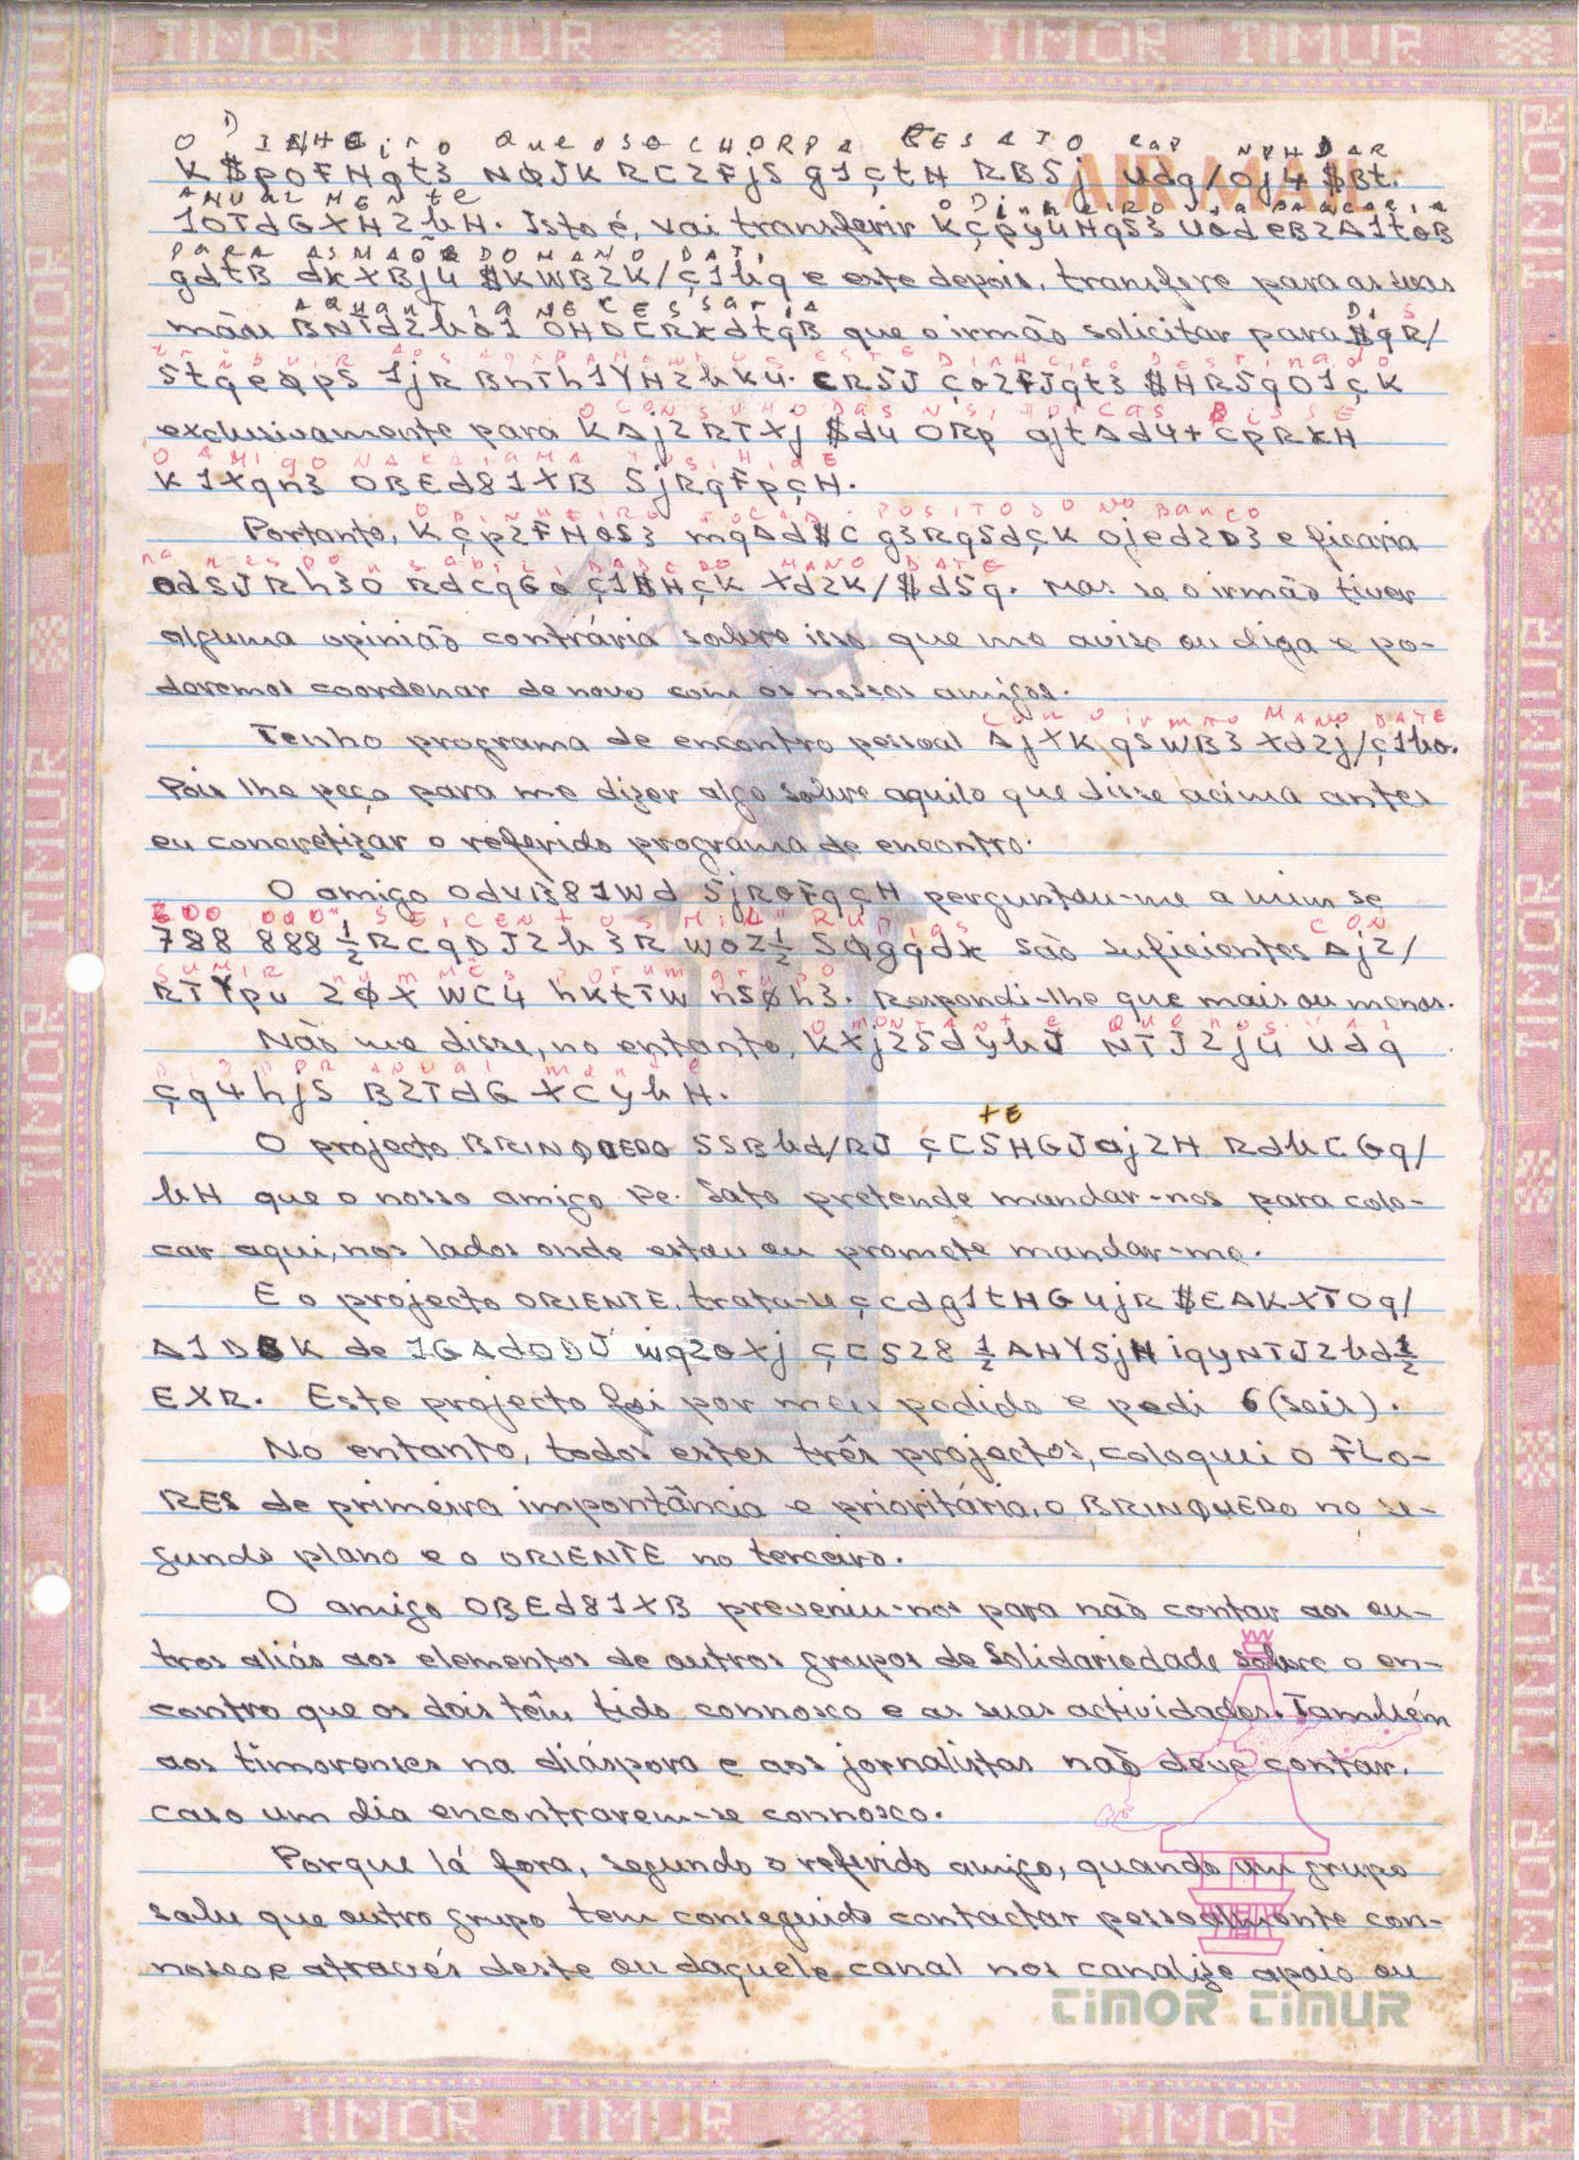 TIMOR TIMUR TIMOR TIMUR
AIR MAIL
O DINHEIRO QUE OSO CHORPA RESATO
K $poFHqt3 NØJK RC2FjS g1çtH RBSj udq/oj4 $Bt.
ANUALMENTE O DINHEIRO
1OTdGXH2hH. Isto é, vai transferir Kçpy4HqS3 UodeB2A1toB
PARA AS MAÕE DO MANO DAT,
gdtB dkXBj4 $KWB2K/ç1hq e este depois, transfere para as suas
AQUANTIA NECESSARIA DIS
mãos BNTd2ho1 OHDCRxdtqB que o irmão solicitar para $qR/
StqeØpS 1jR BnTh1YH2hK4. CRSJ ço2FJqt3 $HRSqO1çK
O CONSUMO DAS NSI DICAS DISSE
exclusivamente para KAj2RTXj $d4 ORp gjtAd4+ CpRxH
O AMIGO NAKAIAMA TOSIHIDE
K1Xqn3 OBEd81XB SjRqFpçH.
O DINHEIRO TOCAD POSITODO NO BANCO
Portanto, Kçp2FHoS3 mqAd$C g3RqSdçK Ojed2D3 e ficaria
NA RESPONSABILIDADE DO MANO DATE
odSJRh3O RdCqGo ç1$HçK Xd2K/$dSq. Mas se o irmão tiver
alguma opinião contrária sobre isso que me avise ou diga e po-
deremos coordenar de novo com os nossos amigos.
CON O IRMÃO MANO DATE
Tenho programa de encontro pessoal AjXK qSWB3 Xd2j/ç1ho.
Pois lhe peço para me dizer algo sobre aquilo que disse acima antes
eu concretizar o referido programa de encontro.
O amigo Odv1381Wd SjRoFqçH perguntou-me a mim se
600 000" SEICENTOS MIL" RUPIAS CON
788 888 ½RCqDJ2h3R wo2½ SØgqdx são suficientes Aj2/
SUMIR num mês por um grupo
RTYpu 2ØX WC4 hKtTW nSØh3. Respondi-lhe que mais ou menos.
O MONTANTE QUE NOS VAI
Não me disse, no entanto, KXj2SdyhJ NTJ2j4 Udq
çq4hjS B2TdG XCyhH.
TE
O projecto BRINQUEDO SSBhd/RJ çCSHGJaj2H RdhCGq/
hH que o nosso amigo Pe. Sato pretende mandar-nos para colo-
car aqui, nos lados onde estou eu promete mandar-me.
E o projecto ORIENTE, trata-se çcdg1tHG4jR $EAKXTOq/
A1DBK de 1GAdODJ wq2oXj çCS28 ½AHYSjH iqyNTJ2hd½
EXR. Este projecto foi por meu pedido e pedi 6 (seis).
No entanto, todos estes três projectos, coloquei o FLO-
RES de primeira importância e prioritária, o BRINQUEDO no se-
gundo plano e o ORIENTE no terceiro.
O amigo OBEd81XB preveniu-nos para não contar aos ou-
tros aliás aos elementos de outros grupos de Solidariedade sobre o en-
contro que os dois têm tido connosco e as suas actividades. Também
aos timorenses na diáspora e aos jornalistas não deve contar.
caso um dia encontrarem-se connosco.
Porque lá fora, segundo o referido amigo, quando um grupo
sabe que outro grupo tem conseguido contactar pessoalmente con-
nosco e através deste ou daquele canal nos canalize apoio ou
TIMOR TIMUR
TIMOR TIMUR TIMOR TIMUR